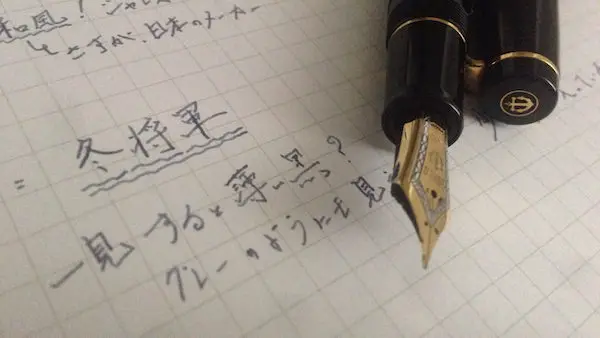 和風?
さすが、日本のメーカー
= 冬将軍
一見すると薄い黒っ?
グレーのようにも見